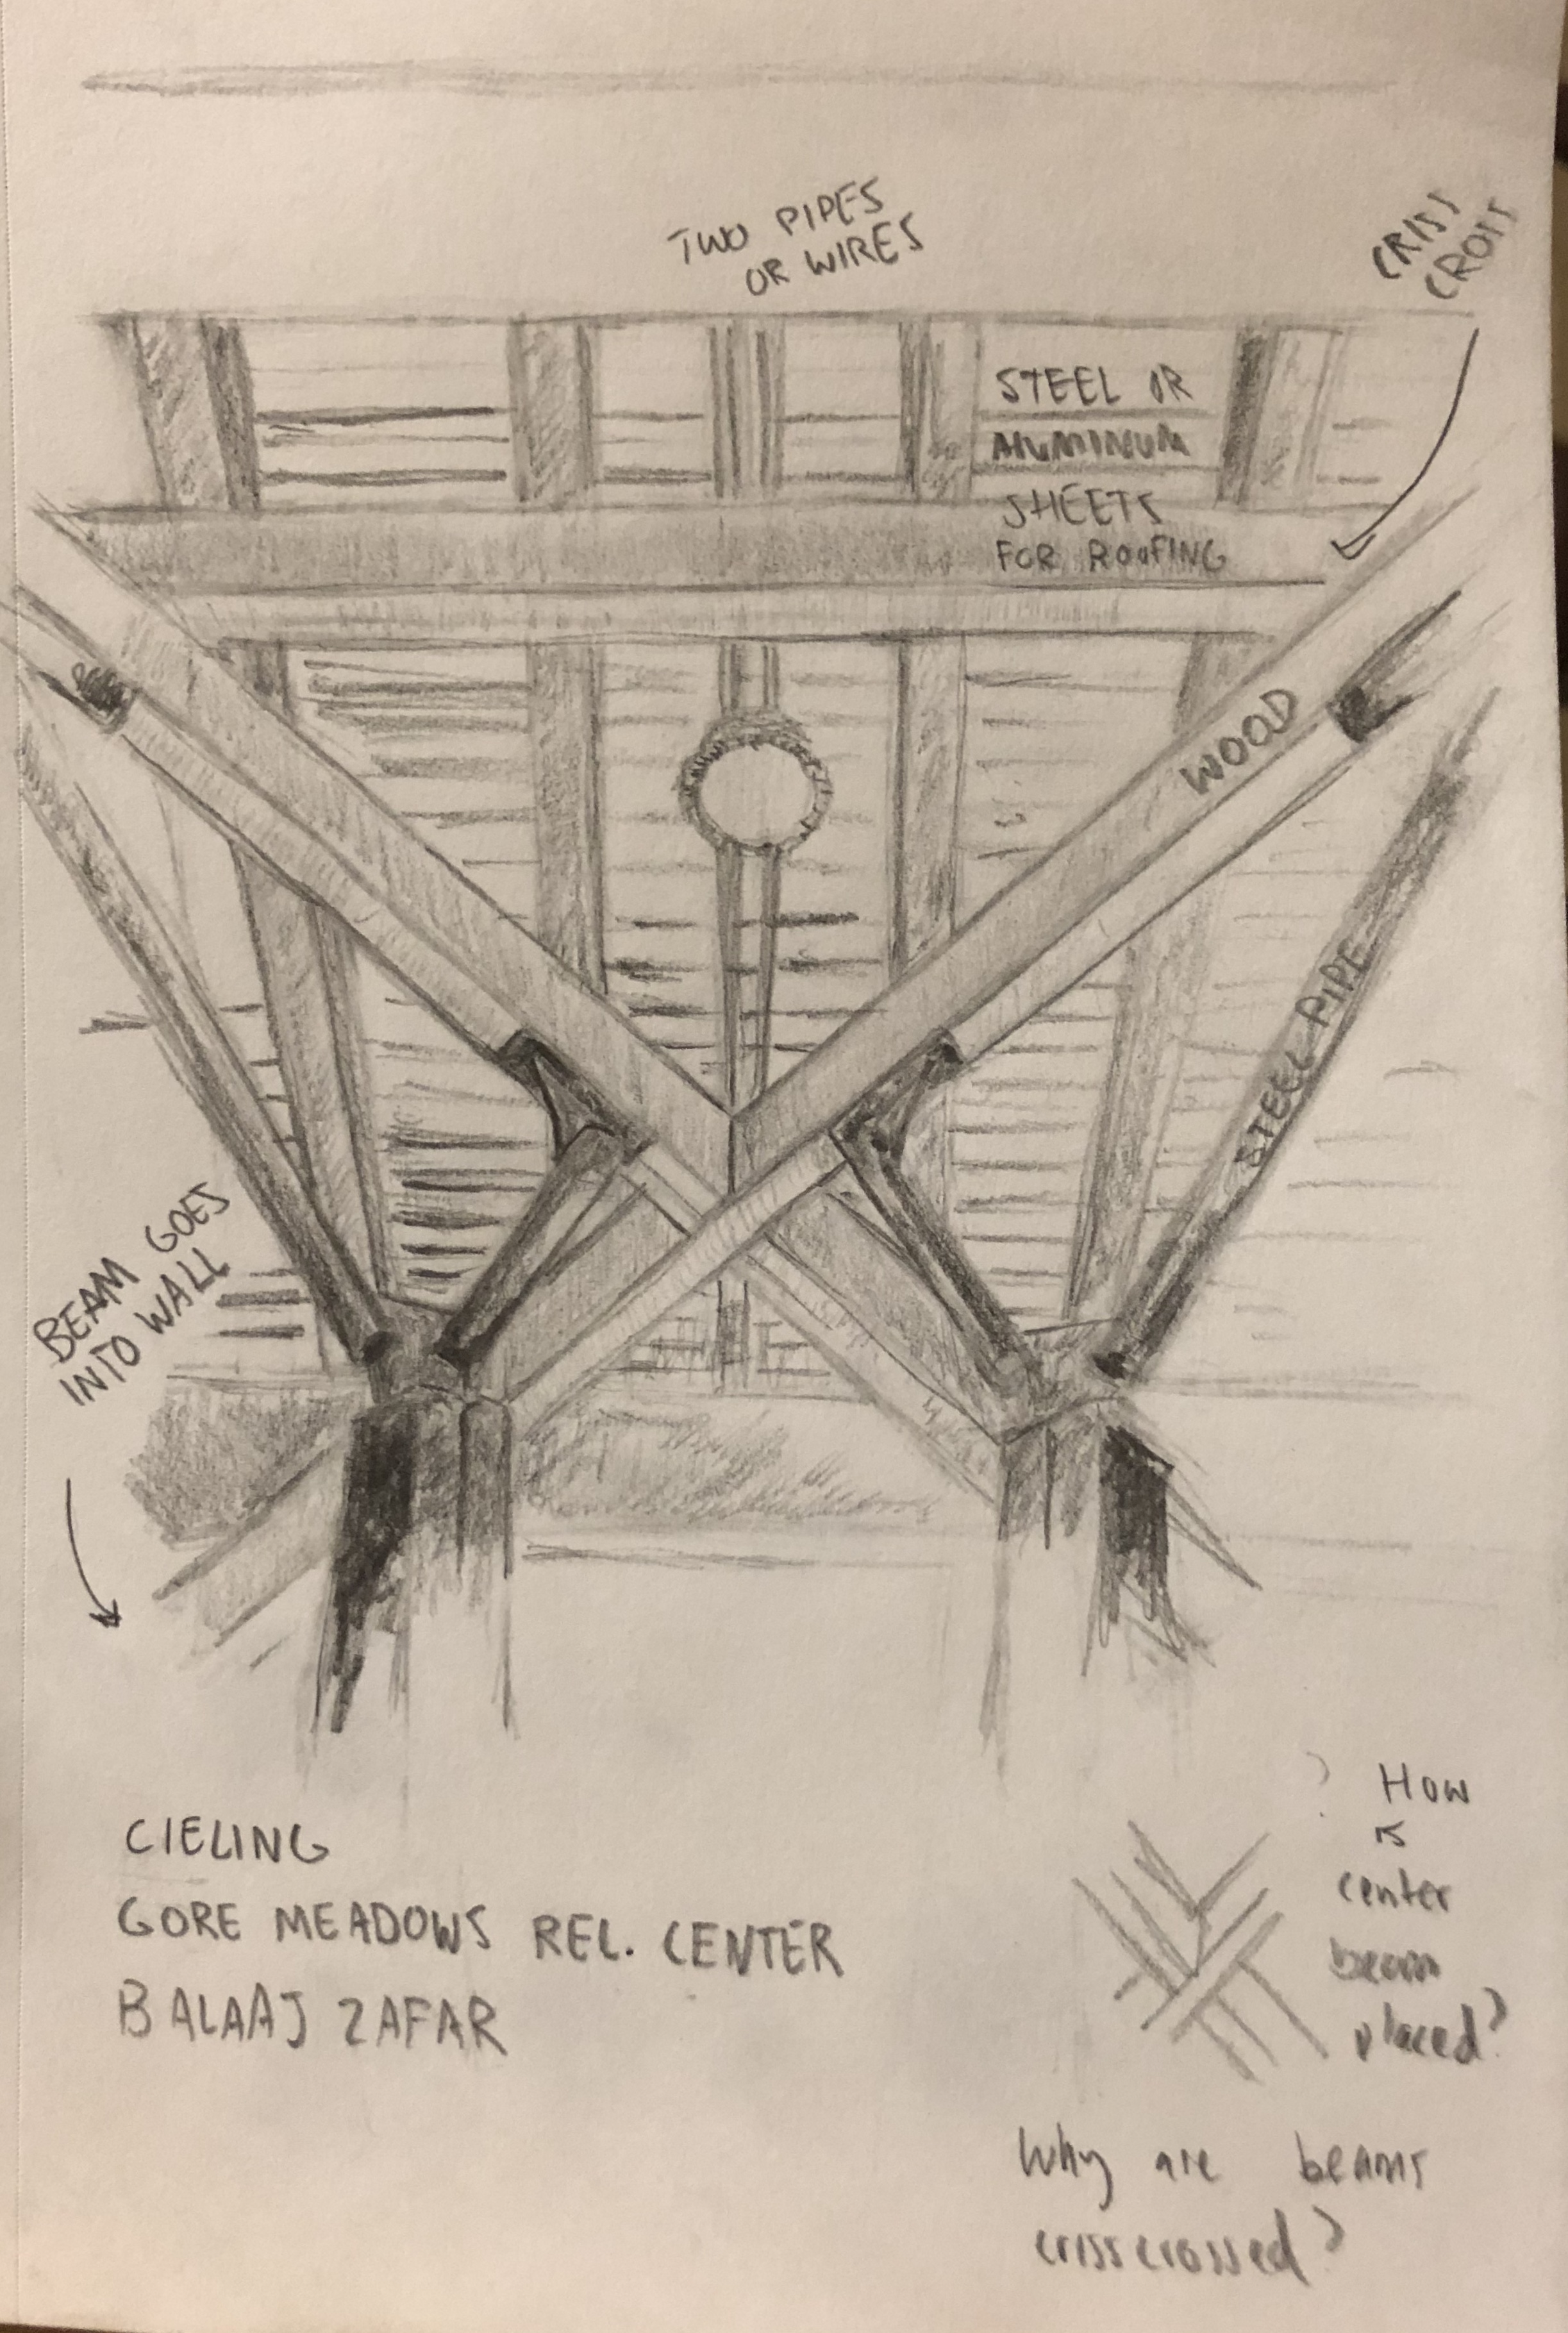 TWO PIPES
OR WIRES
CRISS
CROSS
STEEL OR
ALUMINUM
SHEETS
FOR ROOFING
WOOD
STEEL PIPE
BEAM GOES
INTO WALL
CIELING
GORE MEADOWS REC. CENTER
BALAAJ ZAFAR
? How
is
center
beam
placed?
Why are beams
crisscrossed?